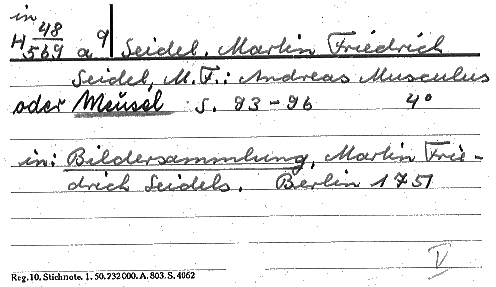 in
H 48/569 a 9 Seidel, Martin Friedrich
Seidel, M. F.: Andreas Musculus
oder Meüsel S. 93-96 4°
in: Bildersammlung, Martin Frie-
drich Seidels. Berlin 1751
V
Reg. 10. Stichnote. 1. 50. 732000. A. 803. S. 4062